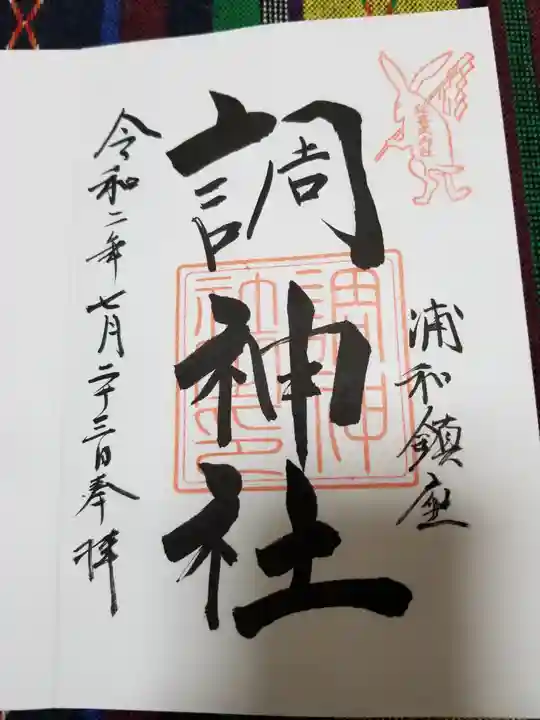 浦和鎮座
調神社
調神社之印
令和二年七月二十三日奉拝